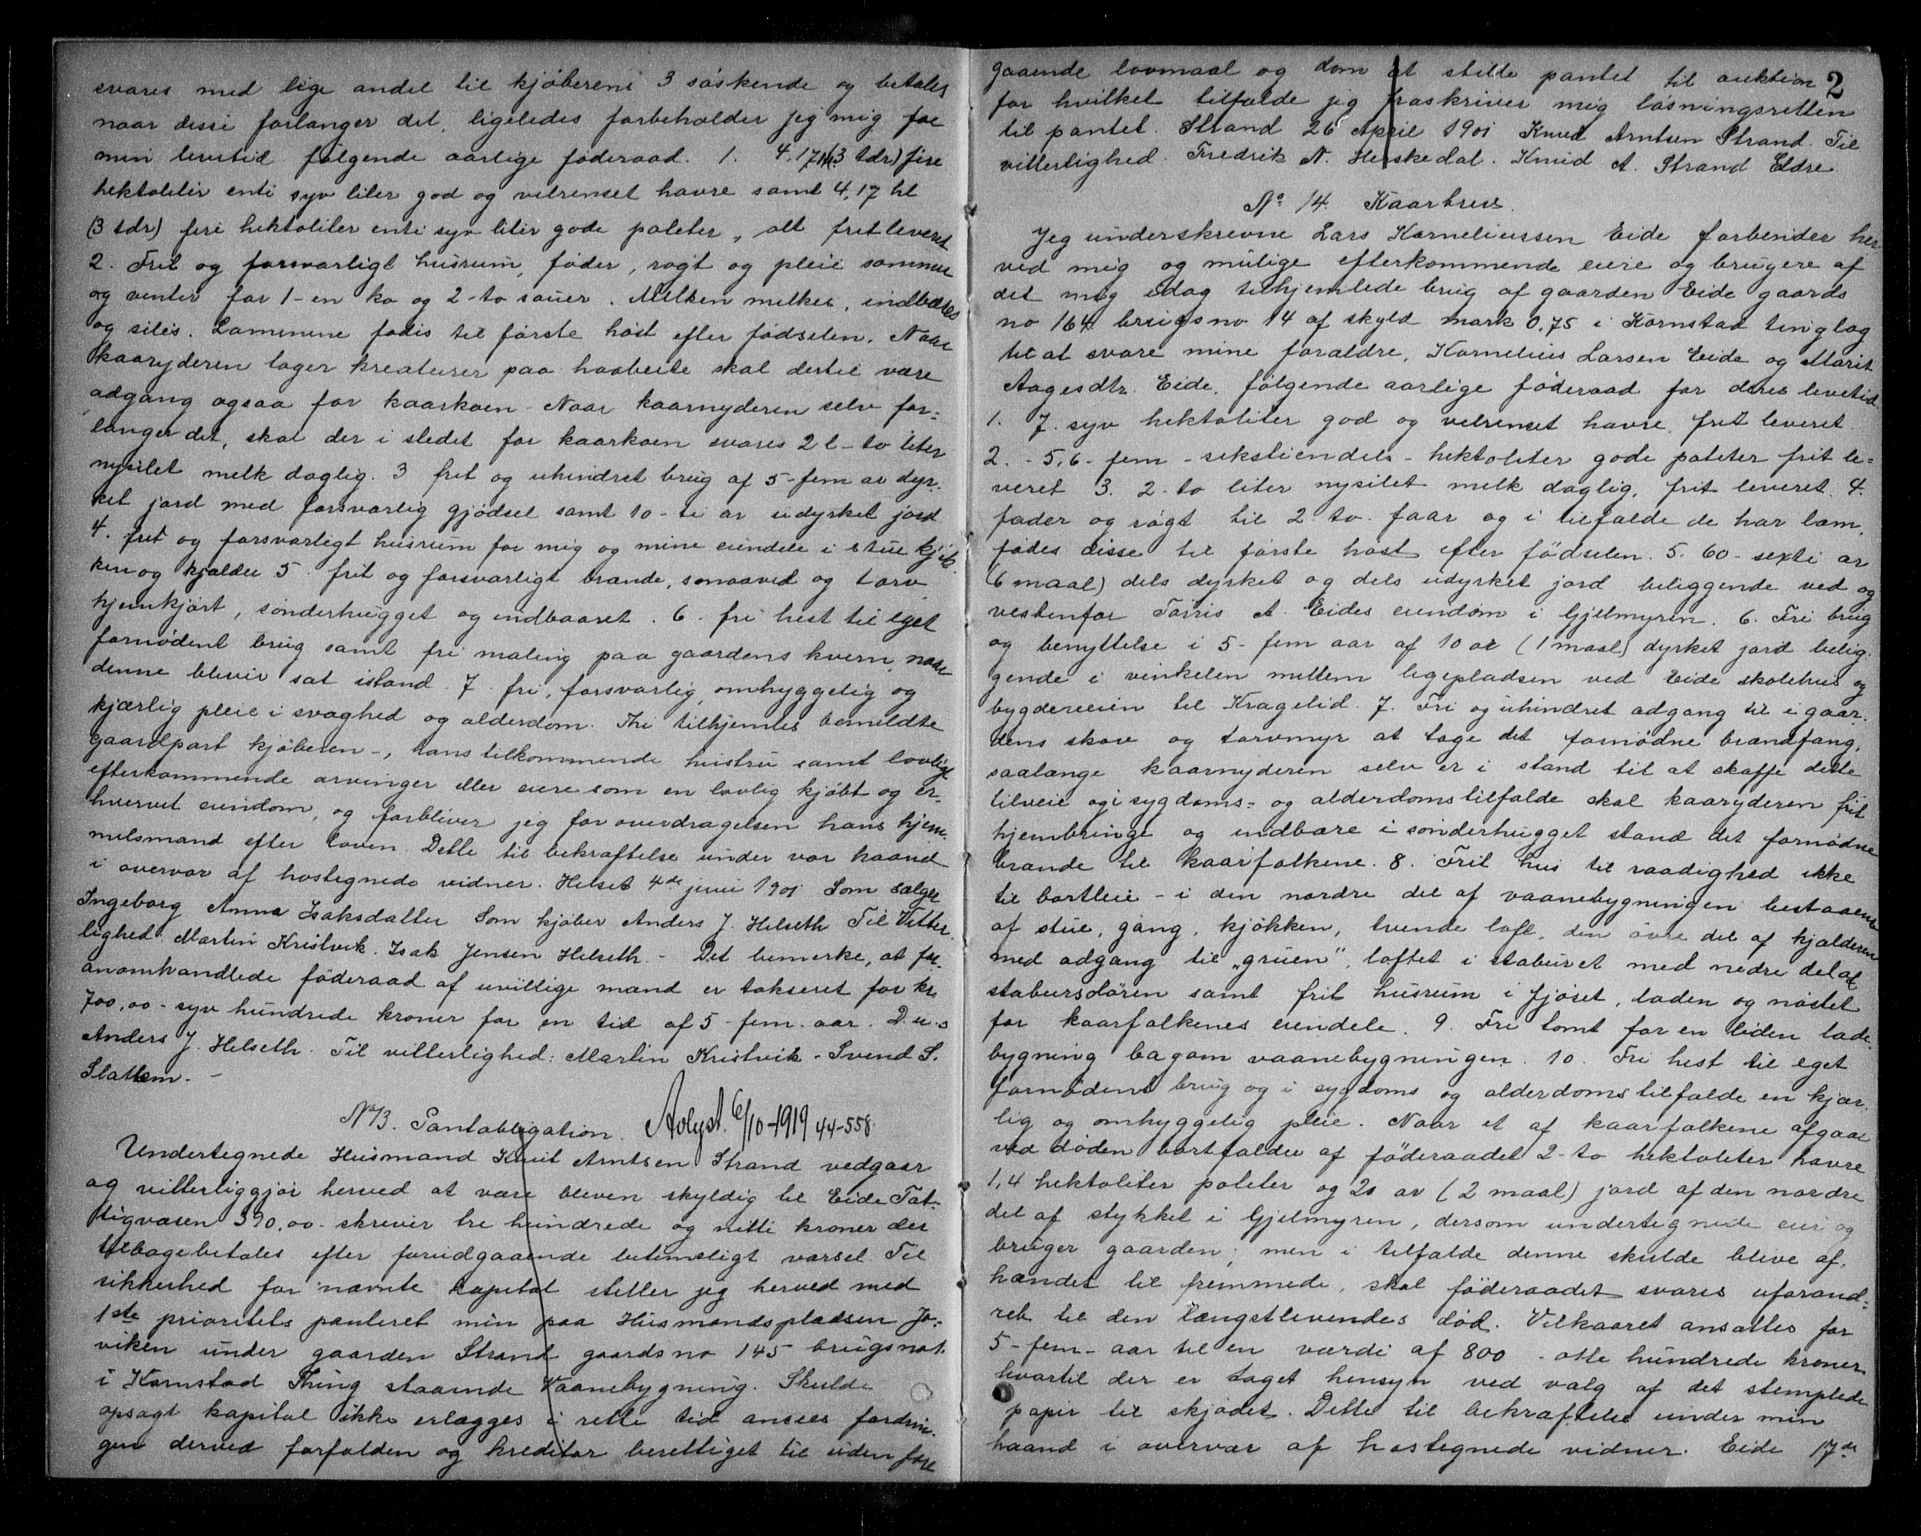 svares med lige andel til kjøberens 3 søskende og betales
naar disse forlanger det, ligeledes forbeholder jeg mig for
min levetid følgende aarlige føderaad. 1. 4,17 hl (3 tdr) fire
hektoliter enti syv liter god og velrenset havre samt 4,17 hl
(3 tdr) fire hektoliter enti syv liter gode poteter, alt frit leveret
2. Frit og forsvarligt husrum, foder, røgt og pleie sommer
og vinter for 1 - en ko og 2 - to sauer. Melken melkes, indbæres
og siles. Lammene fødes til første høst efter fødselen. Naar
kaaryderen tager kreaturer paa haabeite skal dertil være
adgang ogsaa for kaarkoen. Naar kaarnyderen selv for-
langer det, skal der i stedet for kaarkoen svares 2 l - to liter
nysilet melk daglig. 3 frit og uhindret brug af 5 - fem ar dyr-
ket jord med forsvarlig gjødsel samt 10 - ti ar udyrket jord
4. frit og forsvarligt husrum for mig og mine eiendele i stue kjøk-
ken og kjælder 5. frit og forsvarligt brænde, smaaved og torv
hjemkjørt, sønderhugget og indbaaret. 6. fri hest til eget
fornødent brug samt fri maling paa gaardens kvern, naar
denne bliver sat istand. 7. fri, forsvarlig, omhyggelig og
kjærlig pleie i svaghed og alderdom. Thi tilhjemles bemeldte
gaardpart kjøberen -, hans tilkommende hustru samt lovlige
efterkommende arvinger eller eiere som en lovlig kjøbt og er-
hvervet eiendom, og forbliver jeg for overdragelsen hans hjem-
melsmand efter loven. Dette til bekræftelse under vor haand
i overvær af hostegnede vidner. Helset 4de juni 1901 Som sælger
Ingeborg Anna Isaksdatter Som kjøber Anders J. Helseth Til Vitter-
lighed: Martin Kristvik. Isak Jensen Helseth. - Det bemerkes, at for-
anomhandlede føderaad af uvillige mænd er takseret for kr.
700,00 - syv hundrede kroner for en tid af 5 - fem - aar. D.u.s
Anders J. Helseth. Til vitterlighed: Martin Kristvik - Svend S.
Slatlem. -
No 13. Pantobligation. Avlyst 6/10-1919 44-558.
Undertegnede Husmand Knut Arntsen Strand vedgaar
og vitterliggjør herved at være bleven skyldig til Eide Fat-
tigvæsen 390,00 - skriver tre hundrede og nitti kroner der
tilbagebetales efter forudgaaende betimeligt varsel. Til
sikkerhed for nævnte kapital stiller jeg herved med
1ste prioritets panteret min paa Husmandspladsen Jo-
viken under gaarden Strand gaardsno 145 brugsno 1
i Kornstad Thing staaende Vaanebygning. Skulde
opsagt kapital ikke erlægges i rette tid ansees fordrin-
gen derved forfalden og kreditor berettiget til uden fore
2
gaaende lovmaal og dom at stille pantet til auktion
for hvilket tilfælde jeg fraskriver mig løsningsretten
til pantet. Strand 26 April 1901 Knud Arntsen Strand. Til
vitterlighed. Fredrik N. Heiskedal. Knud A. Strand Eldre.
No 14. Kaarbrev.
Jeg underskrevne Lars Korneliussen Eide forbinder her-
ved mig og mulige efterkommende eiere og brugere af
det mig idag tilhjemlede brug af gaarden Eide gaards
no 164 brugsno 14 af skyld mark 0,75 i Kornstad tinglag
til at svare mine forældre, Kornelius Larsen Eide og Marit
Aagesdtr. Eide, følgende aarlige føderaad for deres levetid
1. 7. syv hektoliter god og velrenset havre, frit leveret.
2. - 5,6 - fem - sekstiendels - hektoliter gode poteter frit le-
veret 3. 2 - to liter nysilet melk daglig, frit leveret. 4.
foder og røgt til 2 to faar og i tilfælde de har lam,
fødes disse til første høst efter fødselen. 5. 60 - sexti ar
(6 maal) dels dyrket og dels udyrket jord beliggende ved og
vestenfor Tørris A. Eides eiendom i Gjelmyren. 6. Fri brug
og benyttelse i 5 - fem aar af 10 ar (1 maal) dyrket jord belig-
gende i vinkelen mellem legepladsen ved Eide skolehus og
bygdeveien til Kragelid. 7. Fri og uhindret adgang til i gaar-
dens skov og torvmyr at tage det fornødne brændfang,
saalænge kaarnyderen selv er i stand til at skaffe dette
tilveie og i sygdoms- og alderdomstilfælde skal kaaryderen frit
hjembringe og indbære i sønderhugget stand det fornødne
brænde til kaarfolkene. 8. Frit hus til raadighed ikke
til bortleie - i den nordre del af vaanebygningen bestaaende
af stue, gang, kjøkken, tvende loft, den øvre del af kjælderen
med adgang til "gruen", loftet i staburet med nedre del af
stabursdøren samt frit husrum i fjøset, laden og nøstet
for kaarfolkenes eiendele. 9. Fri tomt for en liden lade-
bygning bagom vaanebygningen. 10. Fri hest til eget
fornødent brug og i sygdoms og alderdomstilfælde en kjær-
lig og omhyggelig pleie. Naar et af kaarfolkene afgaar
ved døden bortfalder af føderaadet 2 - to hektoliter havre
1,4 hektoliter poteter og 20 ar (2 maal) jord af den nordre
del af stykket i Gjelmyren, dersom undertegnede eier og
bruger gaarden; men i tilfælde denne skulde blive af-
hændet til fremmede, skal føderaadet svares uforand-
ret til den længstlevendes død. Vilkaaret ansættes for
5 - fem - aar til en værdi af 800 - otte hundrede kroner
hvortil der er taget hensyn ved valg af det stemplede
papir til skjødet. Dette til bekræftelse under min
haand i overvær af hostegnede vidner. Eide 17de